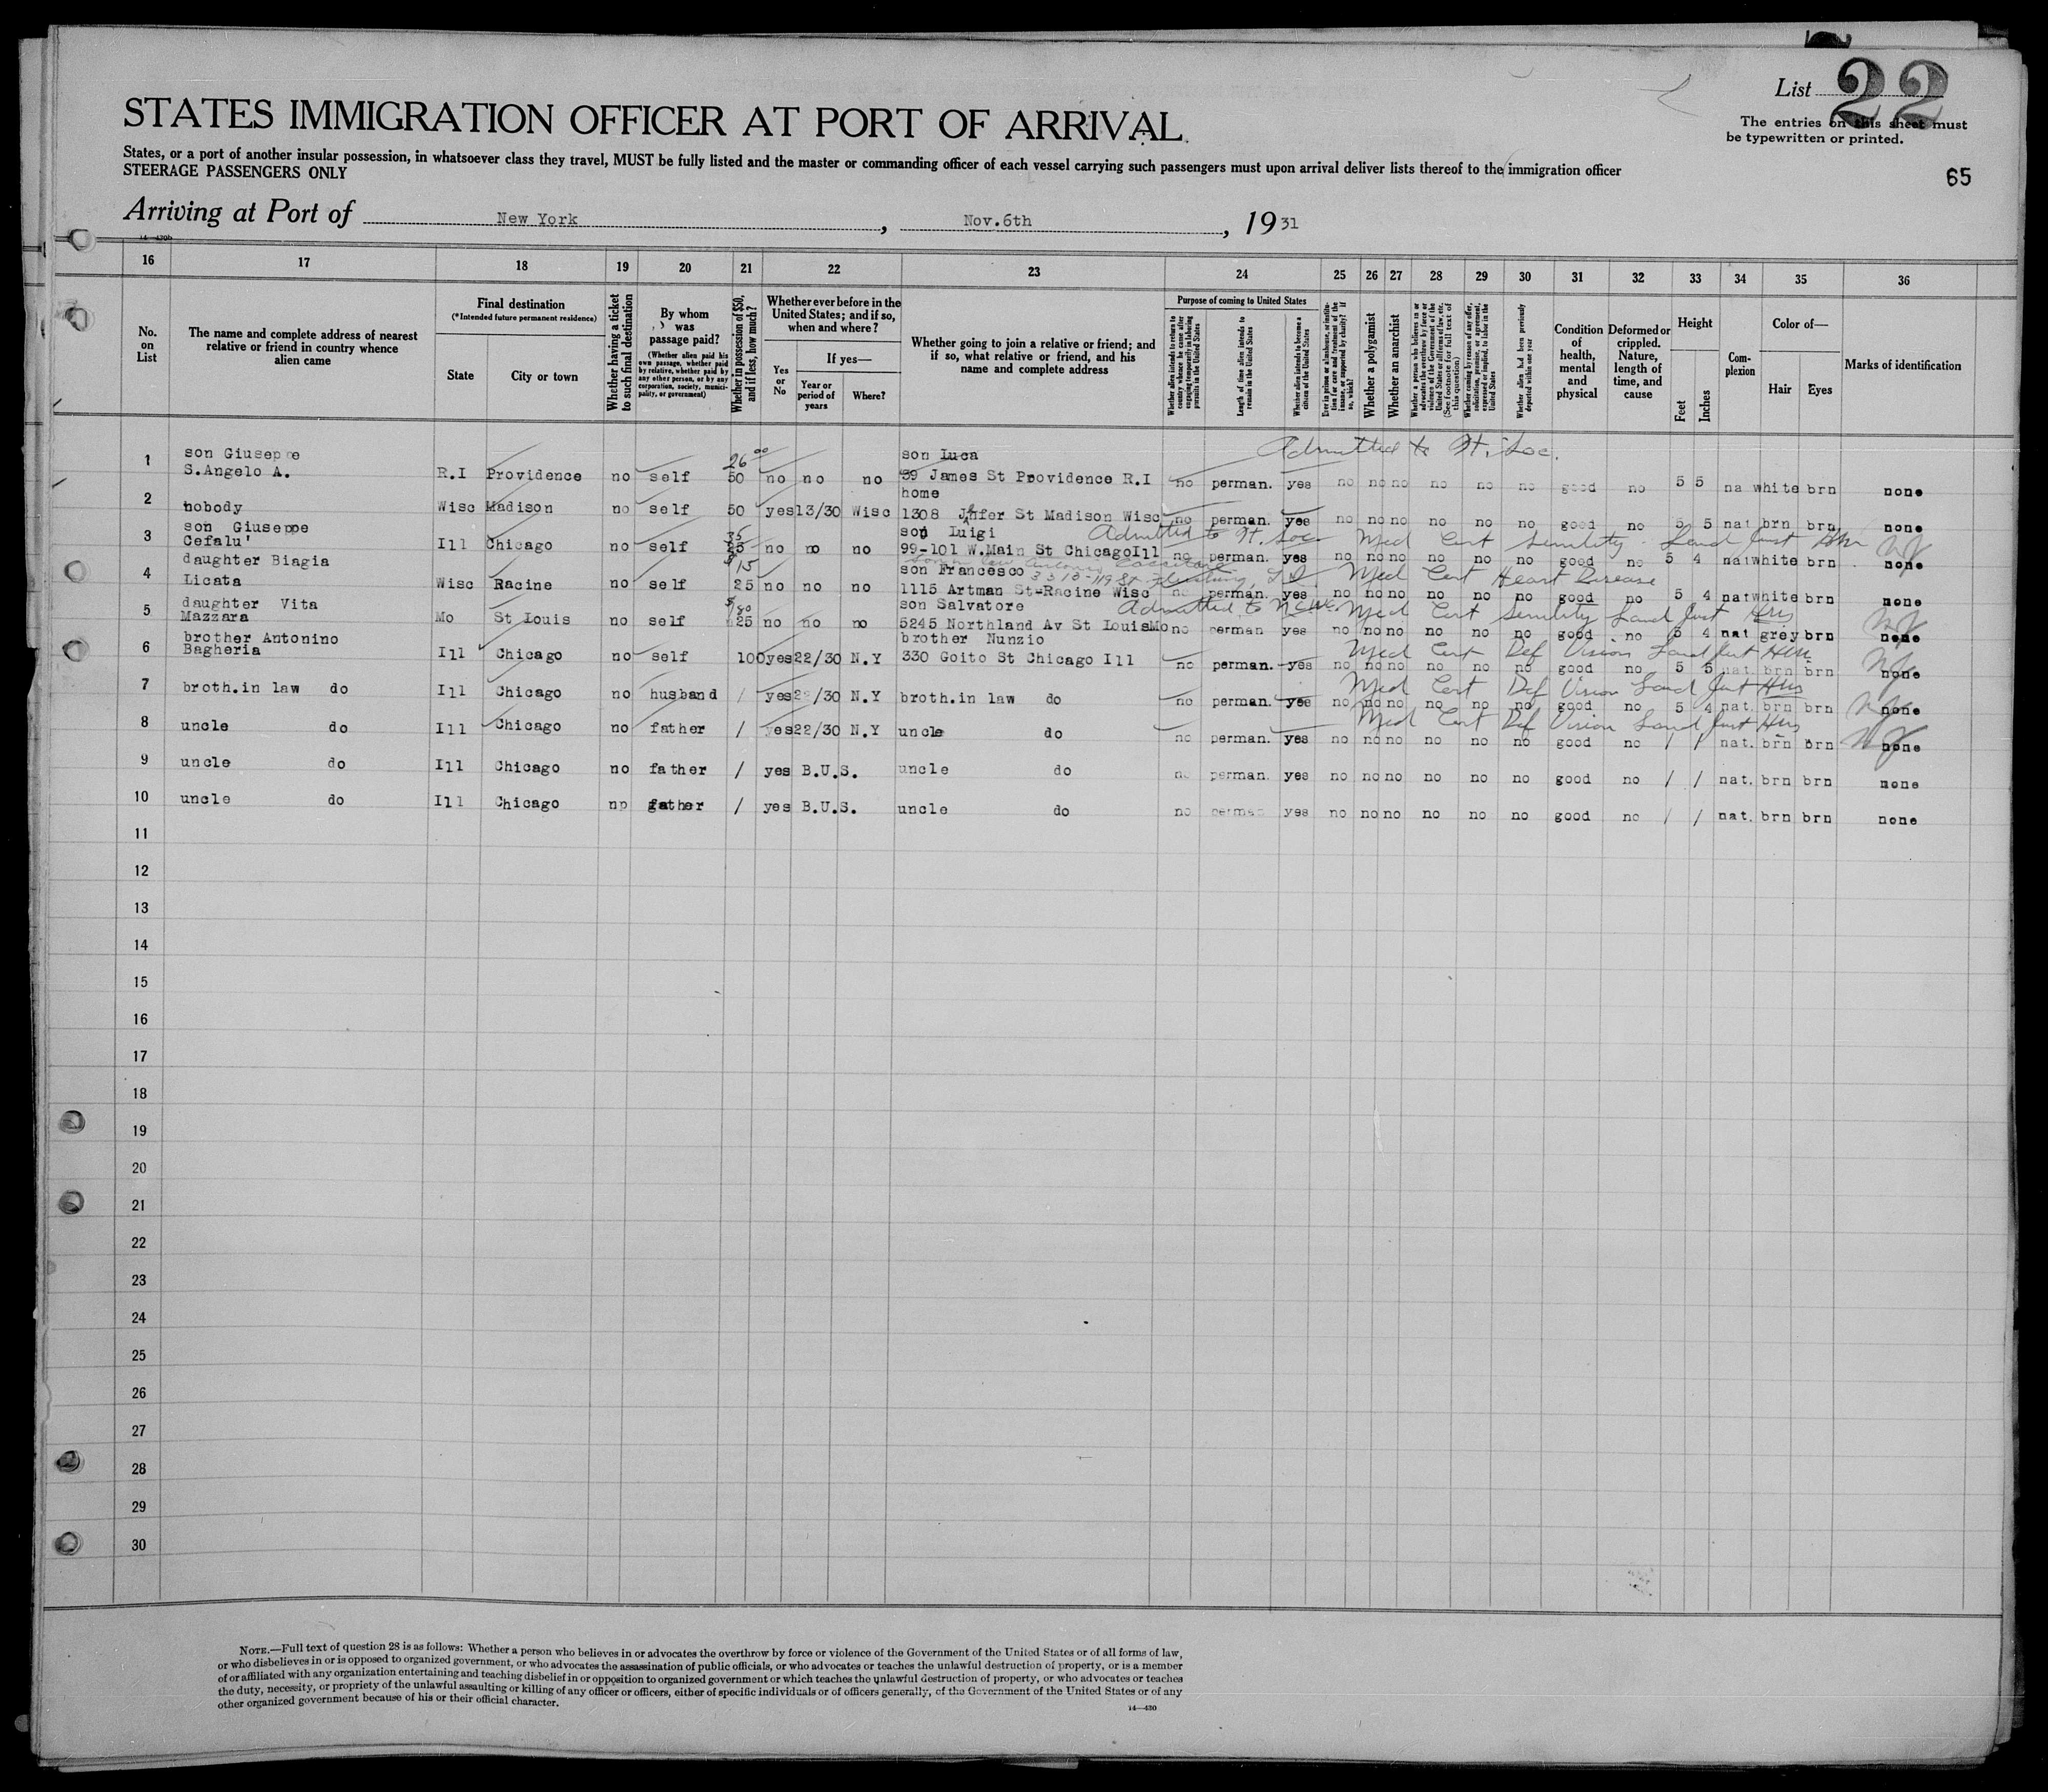 List 22
The entries on this sheet must
be typewritten or printed.
STATES IMMIGRATION OFFICER AT PORT OF ARRIVAL
States, or a port of another insular possession, in whatsoever class they travel, MUST be fully listed and the master or commanding officer of each vessel carrying such passengers must upon arrival deliver lists thereof to the immigration officer
STEERAGE PASSENGERS ONLY
65
Arriving at Port of New York, Nov.6th, 1931
14—430b
16 17 18 19 20 21 22 23 24 25 26 27 28 29 30 31 32 33 34 35 36
No. on List
The name and complete address of nearest relative or friend in country whence alien came
Final destination
(*Intended future permanent residence)
State
City or town
Whether having a ticket to such final destination
By whom was passage paid?
(Whether alien paid his own passage, whether paid by relative, whether paid by any other person, or by any corporation, society, municipality, or government)
Whether in possession of $50, and if less, how much?
Whether ever before in the United States; and if so, when and where?
Yes or No
If yes—
Year or period of years
Where?
Whether going to join a relative or friend; and if so, what relative or friend, and his name and complete address
Purpose of coming to United States
Whether alien intends to return to country whence he came after engaging temporarily in laboring pursuits in the United States
Length of time alien intends to remain in the United States
Whether alien intends to become a citizen of the United States
Ever in prison or almshouse, or institution for care and treatment of the insane, or supported by charity? If so, which?
Whether a polygamist
Whether an anarchist
Whether a person who believes in or advocates the overthrow by force or violence of the Government of the United States or all forms of law, etc. (See footnote for full text of this question)
Whether coming by reason of any offer, solicitation, promise, or agreement, expressed or implied, to labor in the United States
Whether alien had been previously deported within one year
Condition of health, mental and physical
Deformed or crippled. Nature, length of time, and cause
Height
Feet
Inches
Complexion
Color of—
Hair
Eyes
Marks of identification
Admitted to H. Soc.
1 son Giuseppe S.Angelo A. R.I Providence no self 26 00 50 no no no son Luca 39 James St Providence R.I no perman. yes no no no no no no good no 5 5 na white brn none
2 nobody Wisc Madison no self 50 yes 13/30 Wisc home 1308 Jnfer St Madison Wisc no perman. yes no no no no no no good no 5 5 nat brn brn none
Admitted to H. Soc. Med Cert Senility
3 son Giuseppe Cefalu' Ill Chicago no self 25 no no no son Luigi 99-101 W.Main St Chicago Ill no perman. yes no no no no no no good no 5 4 nat white brn none
3313-119 St. Med Cert Heart Disease
4 daughter Biagia Licata Wisc Racine no self $15 25 no no no son Francesco 1115 Artman St-Racine Wisc no perman. yes no no no no no no good no 5 4 nat white brn none
Admitted to Med Cert Senility
5 daughter Vita Mazzara Mo St Louis no self 25 no no no son Salvatore 5245 Northland Av St Louis Mo no perman yes no no no no no no good no 5 4 nat grey brn none
Med Cert Def Vision
6 brother Antonino Bagheria Ill Chicago no self 100 yes 22/30 N.Y brother Nunzio 330 Goito St Chicago Ill no perman. yes no no no no no no good no 5 5 nat. brn brn none
Med Cert Def Vision
7 broth.in law do Ill Chicago no husband / yes 22/30 N.Y broth.in law do no perman. yes no no no no no no good no 5 4 nat. brn brn none
Med Cert Def Vision
8 uncle do Ill Chicago no father / yes 22/30 N.Y uncle do no perman. yes no no no no no no good no / / nat. brn brn none
9 uncle do Ill Chicago no father / yes B.U.S. uncle do no perman. yes no no no no no no good no / / nat. brn brn none
10 uncle do Ill Chicago np father / yes B.U.S. uncle do no perman yes no no no no no no good no / / nat. brn brn none
11
12
13
14
15
16
17
18
19
20
21
22
23
24
25
26
27
28
29
30
NOTE.—Full text of question 28 is as follows: Whether a person who believes in or advocates the overthrow by force or violence of the Government of the United States or of all forms of law,
or who disbelieves in or is opposed to organized government, or who advocates the assassination of public officials, or who advocates or teaches the unlawful destruction of property, or is a member
of or affiliated with any organization entertaining and teaching disbelief in or opposition to organized government or which teaches the unlawful destruction of property, or who advocates or teaches
the duty, necessity, or propriety of the unlawful assaulting or killing of any officer or officers, either of specific individuals or of officers generally, of the Government of the United States or of any
other organized government because of his or their official character.
14—430